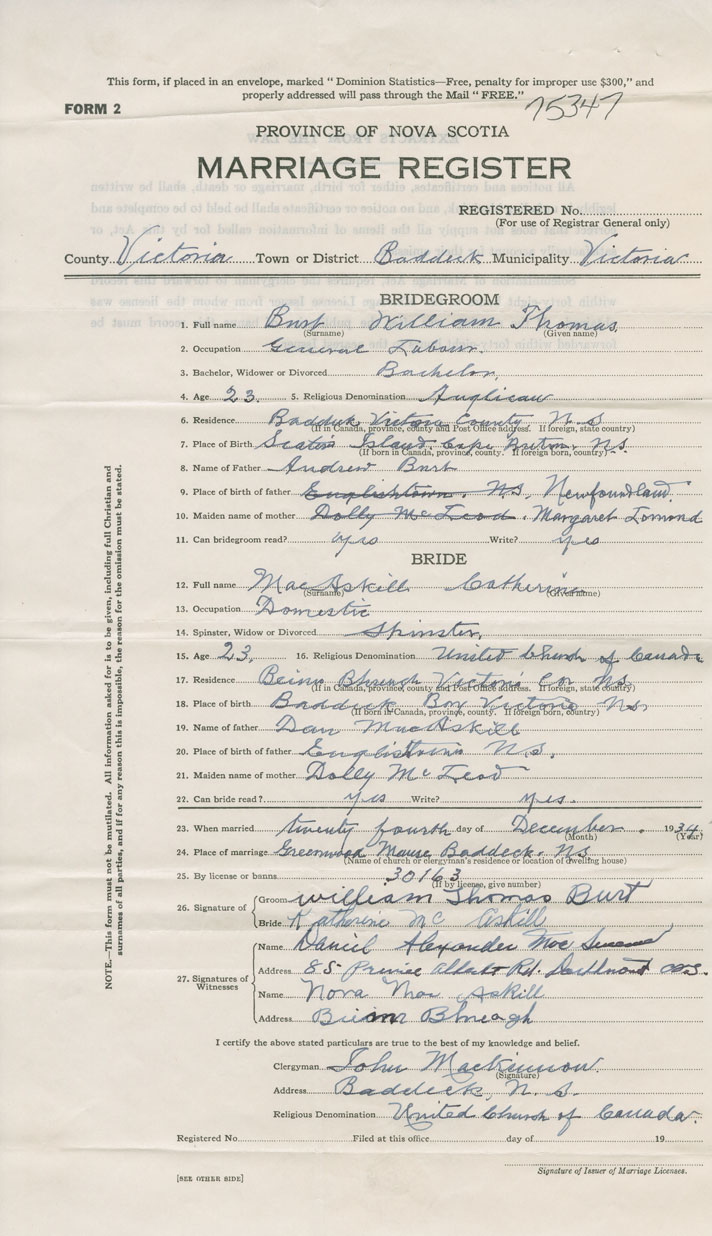 This form, if placed in an envelope, marked “ Dominion Statistics—Free, penalty for improper use $300,” and
properly addressed will pass through the Mail “ FREE.”
FORM 2
75347
PROVINCE OF NOVA SCOTIA
MARRIAGE REGISTER
REGISTERED No.
(For use of Registrar General only)
County Victoria Town or District Baddeck Municipality Victoria
BRIDEGROOM
1. Full name Burt William Thomas
(Surname) (Given name)
2. Occupation General Labour.
3. Bachelor, Widower or Divorced Bachelor,
4. Age 23. 5. Religious Denomination Anglican
6. Residence Baddeck Victoria County N.S
(If in Canada, province, county and Post Office address. If foreign, state country)
7. Place of Birth Island Cape Breton. N.S.
(If born in Canada, province, county. If foreign born, country)
8. Name of Father Andrew Burt
9. Place of birth of father Englishtown. N.S. Newfoundland.
10. Maiden name of mother Dolly McLeod. Margaret Lomond
11. Can bridegroom read? yes Write? yes
BRIDE
12. Full name MacAskill Catherine
(Surname) (Given name)
13. Occupation Domestic
14. Spinster, Widow or Divorced Spinster,
15. Age 23. 16. Religious Denomination United Church of Canada
17. Residence Beinn Bhreagh Victoria Co. N.S.
(If in Canada, province, county and Post Office address. If foreign, state country)
18. Place of Birth Baddeck Bay Victoria N.S.
(If born in Canada, province, county. If foreign born, country)
19. Name of father Dan MacAskill
20. Place of birth of father Englishtown N.S.
21. Maiden name of mother Dolly McLeod
22. Can bride read? yes Write? yes.
23. When married twenty fourth day of December. 1934
(Month) (Year)
24. Place of marriage Greenwood Manse Baddeck. N.S
(Name of church or clergyman's residence or location of dwelling house)
25. By license or banns 30163
(If by license, give number)
26. Signature of Groom William Thomas Burt
Bride Katherine Mc Askill
27. Signatures of Witnesses Name Daniel Alexander Mac
Address 85 Prince Albert Rd. Dartmouth N.S.
Name Nora Mac Askill
Address Beinn Bhreagh
I certify the above stated particulars are true to the best of my knowledge and belief.
Clergyman John Mackinnon.
(Signature)
Address Baddeck, N.S.
Religious Denomination United Church of Canada.
Registered No. Filed at this office day of 19
Signature of Issuer of Marriage Licenses.
[SEE OTHER SIDE]
NOTE.—This form must not be mutilated. All information asked for is to be given, including full Christian and
surnames of all parties, and if for any reason this is impossible, the reason for the omission must be stated.